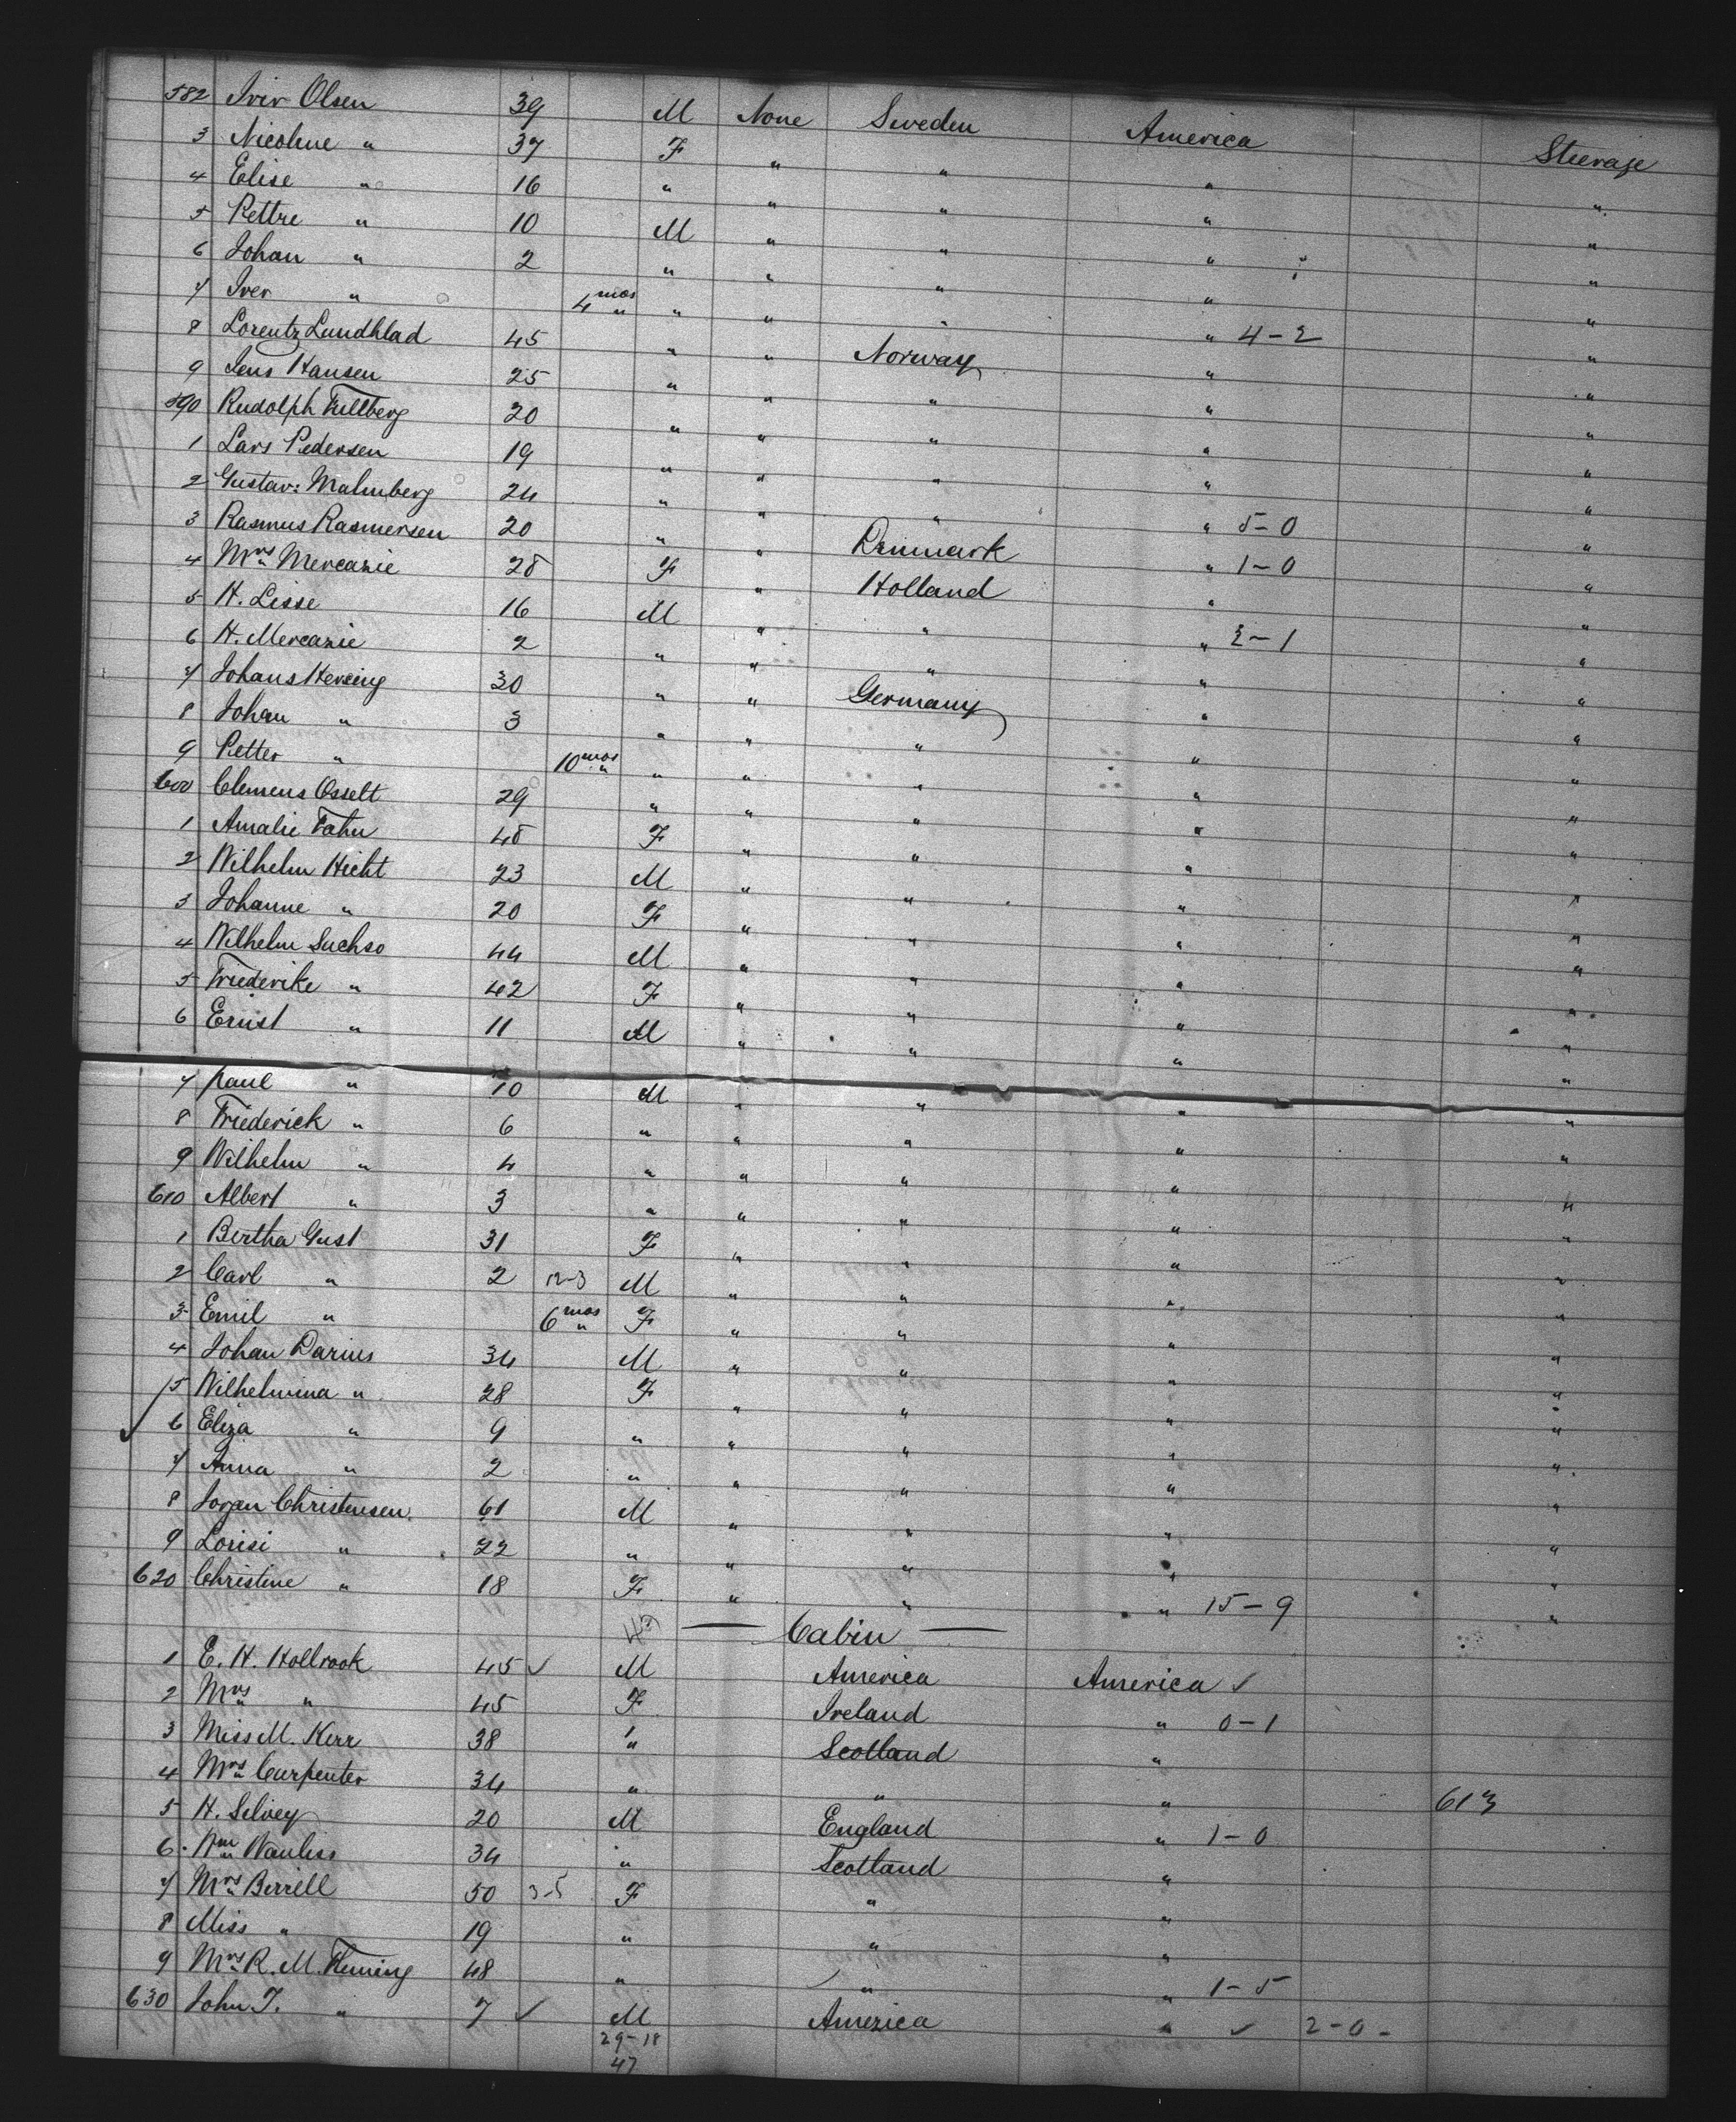 582 Iver Olsen 39 M None Sweden America Steerage
3 Nicoline " 37 F " " " "
4 Elise " 16 " " " " "
5 Pettre " 10 M " " " "
6 Johan " 2 " " " " "
7 Iver " 4 mos " " " " "
8 Lorentz Lundblad 45 " " Norway " 4-2 "
9 Jens Hansen 25 " " " " "
590 Rudolph Fullberg 20 " " " " "
1 Lars Pedersen 19 " " " " "
2 Gustav: Malmberg 24 " " " " "
3 Rasmus Rasmersen 20 " " Denmark " 5-0 "
4 Mrs Mercanie 28 F " Holland " 1-0 "
5 H. Lisse 16 M " " " "
6 H. Mercanie 2 " " " " 2-1 "
7 Johans Hersing 30 " " Germany " "
8 Johan " 3 " " " " "
9 Petter " 10 mos " " " " "
600 Clemens Osselt 29 " " " " "
1 Amalie Fahn 48 F " " " "
2 Wilhelm Hicht 23 M " " " "
3 Johanne " 20 F " " " "
4 Wilhelm Suchso 44 M " " " "
5 Friederike " 42 F " " " "
6 Ernst " 11 M " " " "
7 Paul " 10 M " " " "
8 Friederick " 6 " " " " "
9 Wilhelm " 4 " " " " "
610 Albert " 3 " " " " "
1 Bertha Gust 31 F " " " "
2 Carl " 2 12-3 M " " " "
3 Emil " 6 mos F " " " "
4 Johan Darius 34 M " " " "
5 Wilhelmina " 28 F " " " "
✓ 6 Eliza " 9 " " " " "
7 Anna " 2 " " " " "
8 Jorgan Christensen 61 M " " " "
9 Lorisi " 22 " " " " "
620 Christine " 18 F " " " 15-9 "
43 — Cabin —
1 E. H. Holbrook 45 ✓ M America America ✓
2 Mrs " 45 F Ireland " 0-1
3 Miss M. Kerr 38 " Scotland "
4 Mrs Carpenter 34 " " " 613
5 H. Selvey 20 M England " 1-0
6 Wm Wauliss 34 " Scotland "
7 Mrs Birrell 50 3-5 F " "
8 Miss " 19 " " "
9 Mrs R. M. Fleming 48 " " " 1-5
630 John T. " 7 ✓ M America " ✓ 2-0-
29-18
47